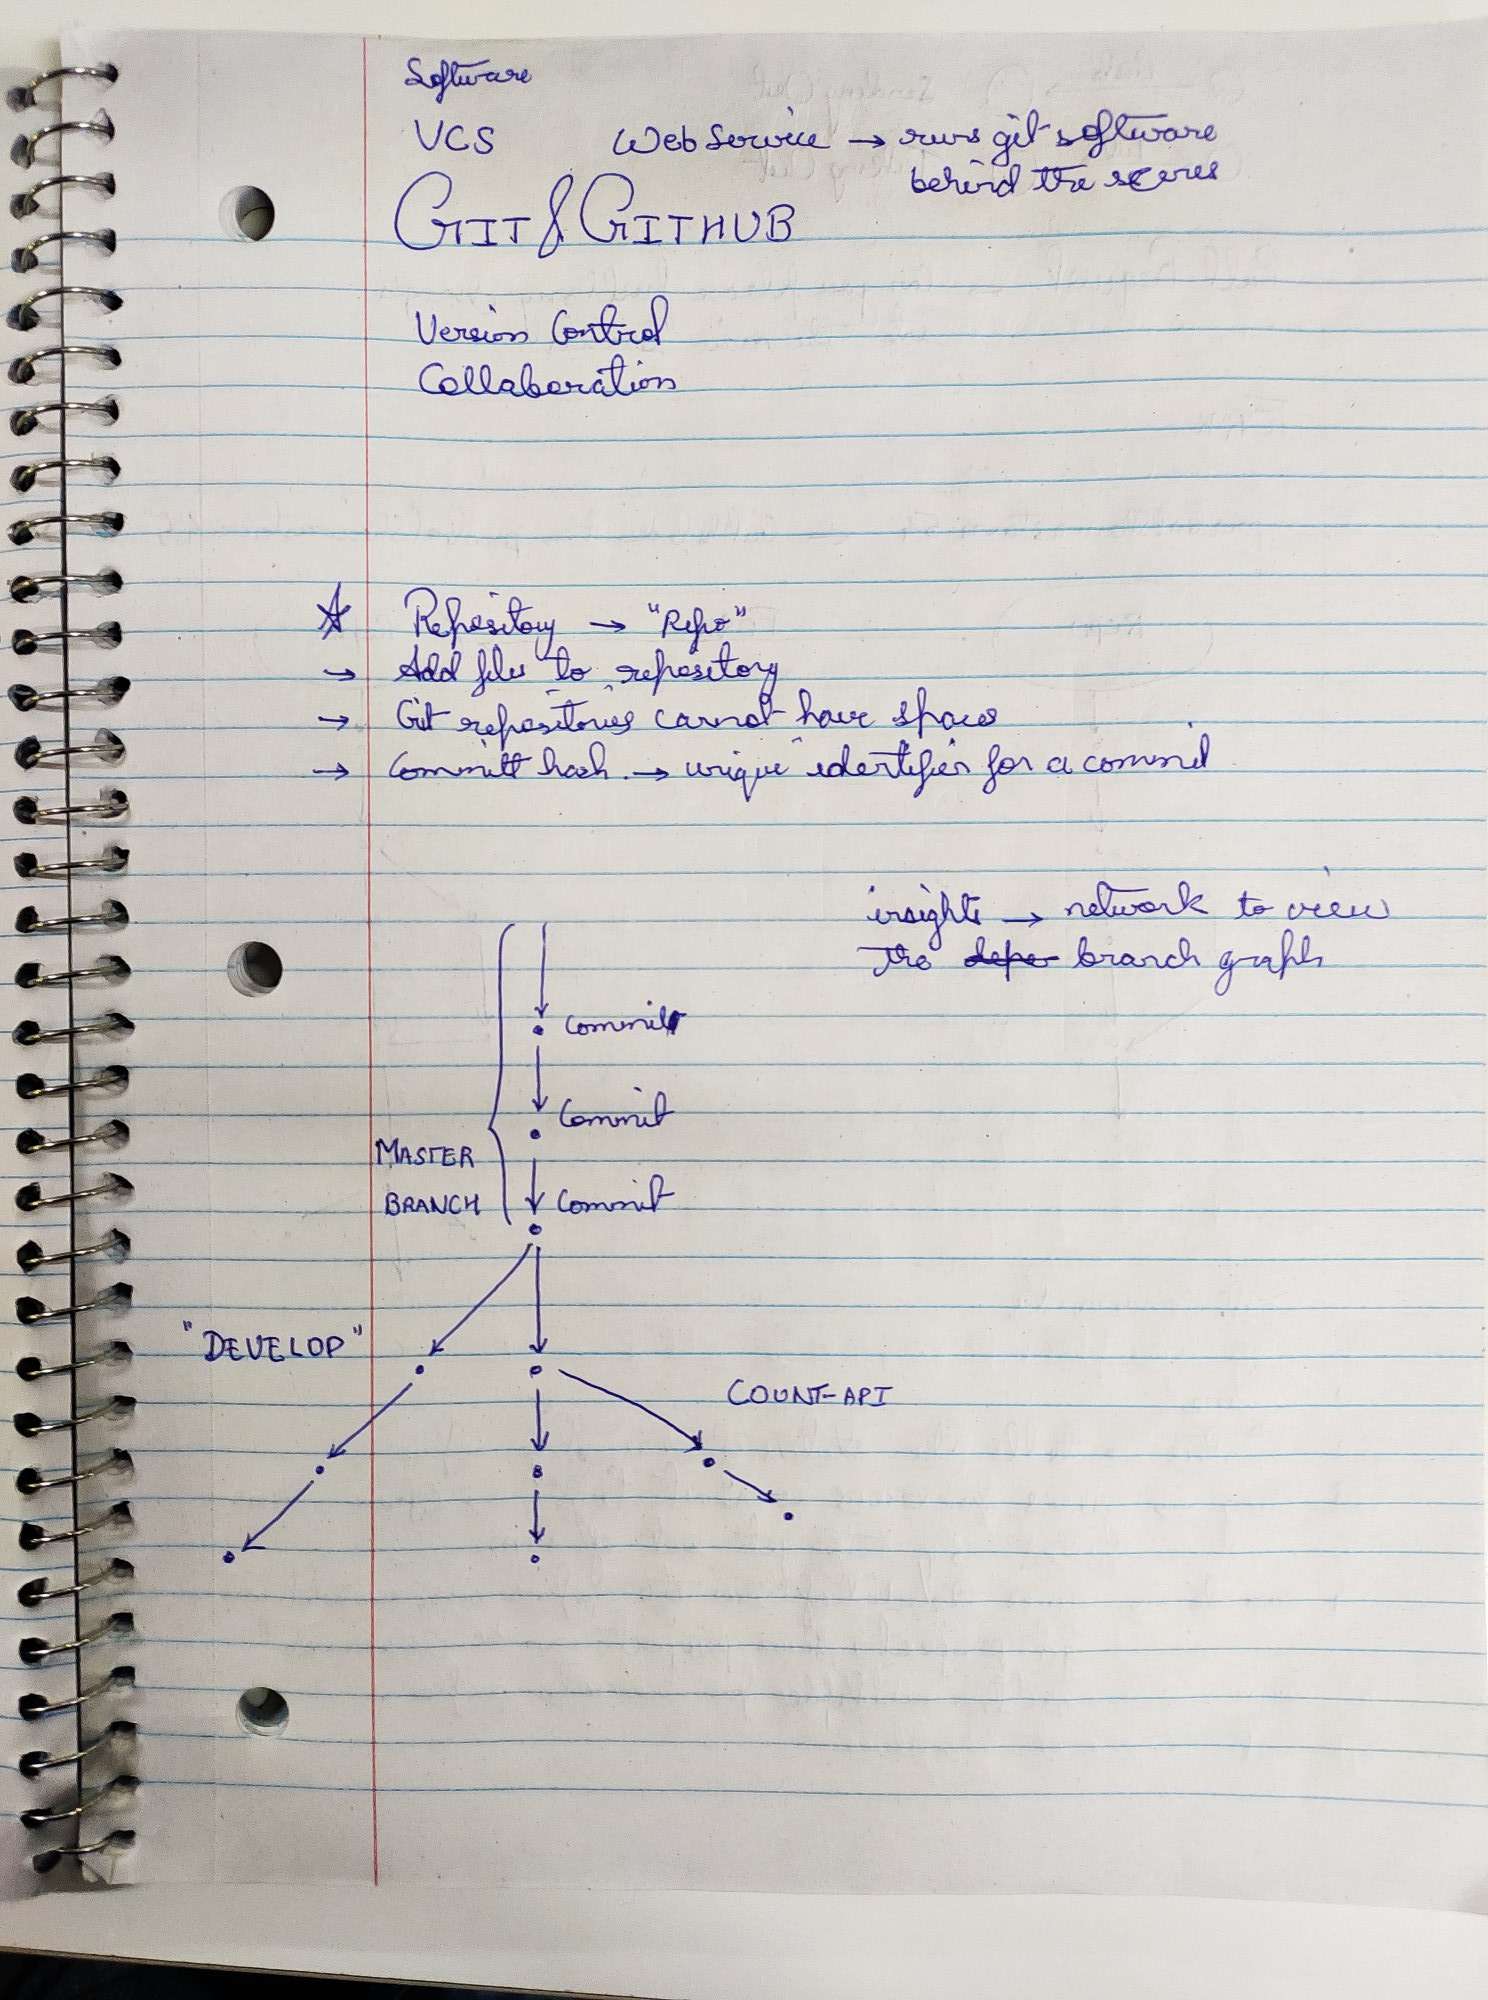 Software
VCS Web Service → runs git software
behind the scenes
GIT & GITHUB
Version Control
Collaboration
☆ Repository → "Repo"
→ Add files to repository
→ Git repositories cannot have spaces
→ Committ hash → unique identifier for a commit
insights → network to view
the branch graph
Commit
Commit
MASTER
BRANCH
Commit
"DEVELOP"
COUNT-API